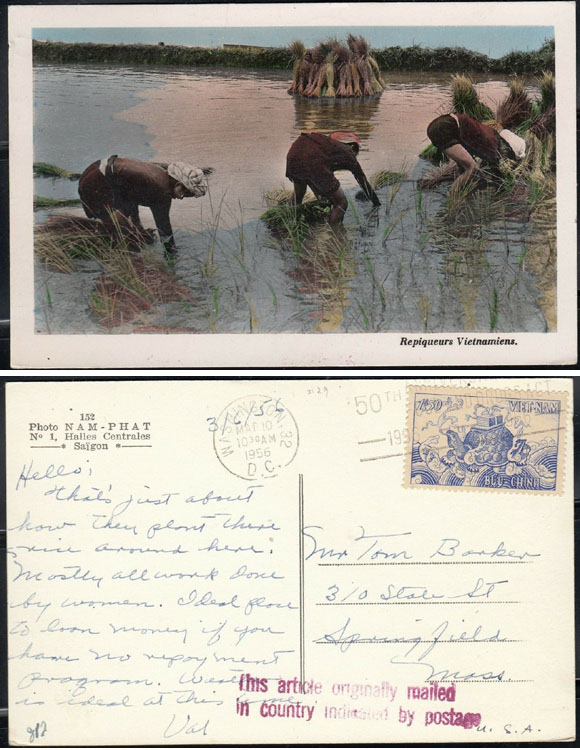 Repiqueurs Vietnamiens.
152
Photo NAM-PHAT
Nº 1, Halles Centrales
* Saïgon *
3/6/56
WASHINGTON
MAR 10
10 AM
1956
D.C.
32
50TH
195
7$50
VIET-NAM
BƯU-CHÍNH
Hello;
that's just about
how they plant there
rice around here.
Mostly all work done
by women. Ideal place
to loan money if you
have no repayment
program.
is ideal at this
Val
Mr Tom Barker
310 State St
Springfield
Mass.
U. S. A.
This article originally mailed
in country indicated by postage